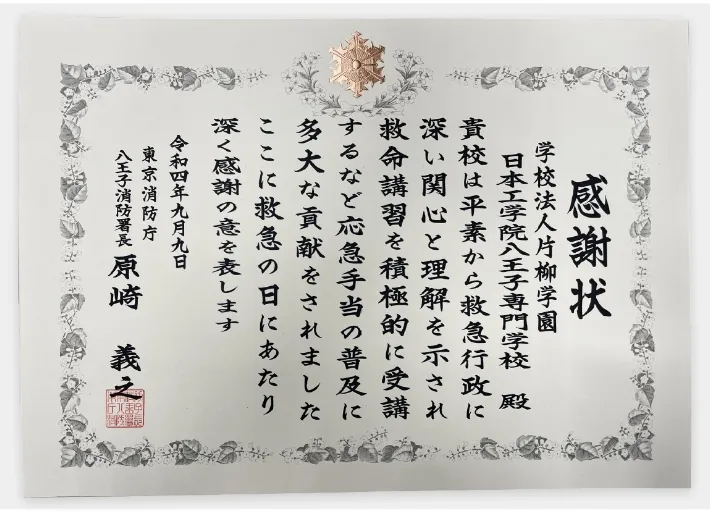 感謝状
学校法人片柳学園
日本工学院八王子専門学校 殿
貴校は平素から救急行政に
深い関心と理解を示され
救命講習を積極的に受講
するなど応急手当の普及に
多大な貢献をされました
ここに救急の日にあたり
深く感謝の意を表します
令和四年九月九日
東京消防庁
八王子消防署長 原崎 義之